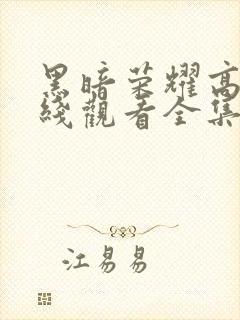 黑暗荣耀高
线觀看全集
江易易